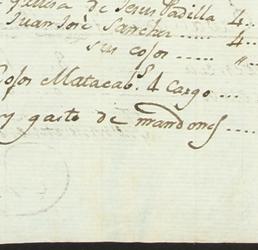 de Jesus Padilla 4..
Juan Josè Sanchez ..... 4..
su cosor ..... "..
Cosor Matacab.s 4 Cargo ...
y gasto de mandones .....